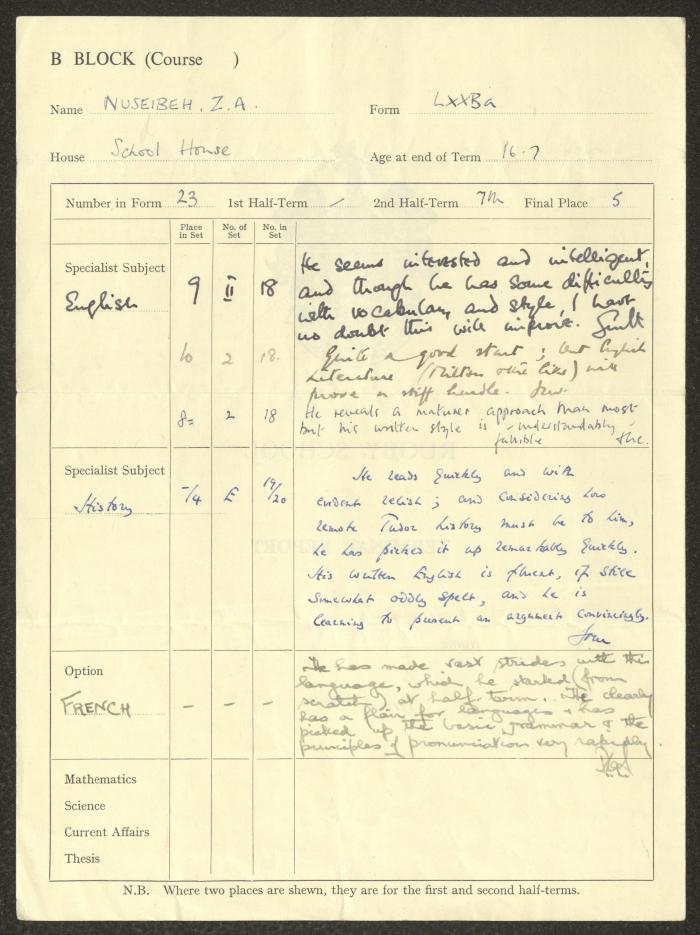 B BLOCK (Course )
Name NUSEIBEH. Z.A. Form LXXBa
House School House Age at end of Term 16.7
Number in Form 23 1st Half-Term / 2nd Half-Term 7th Final Place 5
Place in Set No. of Set No. in Set
Specialist Subject
English
9 II 18
He seems interested and intelligent,
and though he has some difficulty
with vocabulary and style, I have
no doubt this will improve.
10 2 18.
Quite a good start; but English
Literature (Milton & the like) will
prove a stiff hurdle.
8= 2 18
He reveals a maturer approach than most
but his written style is - understandably -
fallible
Specialist Subject
History
-/4 E 19/20
He reads quickly and with
evident relish; and considering how
remote Tudor history must be to him,
he has picked it up remarkably quickly.
His written English is fluent, if still
somewhat oddly spelt, and he is
learning to present an argument convincingly.
Option
FRENCH
- - -
He has made vast strides with this
language, which he started (from
scratch) at half term. He clearly
has a flair for languages & has
picked up the basic grammar & the
principles of pronunciation very rapidly.
Mathematics
Science
Current Affairs
Thesis
N.B. Where two places are shewn, they are for the first and second half-terms.
RUGBY SCHOOL
TERMINAL REPORT